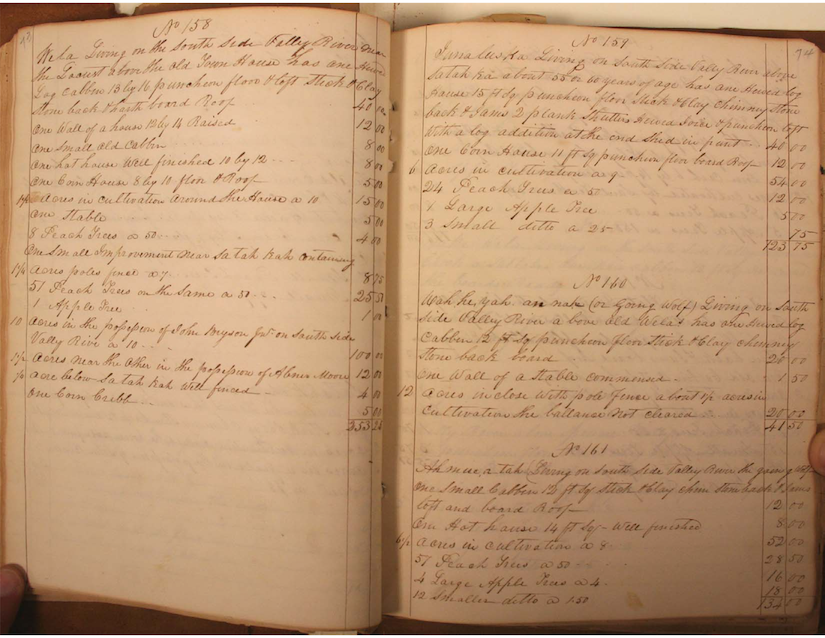 No 158
Wela Living on the South Side Valley River near
the Locust above the old Town House has one Hewd
Log Cabbin 13 by 16 puncheon floor & loft Stick & Clay
Stone back & harth board Roof 40 00
One Wall of a house 12 by 14 Raised 12 00
One Small old Cabbin 8 00
One hot house Well finished 10 by 12 8 00
One Corn House 8 by 10 floor & Roof 5 00
acres in cultivation around the House a 10 15 00
One Stable 5 00
8 Peach Trees a 50 4 00
One Small Improvement Near Sa tah Kah containing
1 1/4 acres poles fence a 7 8 75
51 Peach Trees on the Same a 50 25 50
1 Apple Tree 1 00
10 acres in the possession of John Bryson Jur on South Side
Valley River a 10 100 00
acres Near the other in the possession of Abner Moore 12 00
acre below Sa tah Kah Well fenced 4 00
One Corn Cribb 5 00
253 25
74
No 159
Junaluska Living on South Side Valley River above
Sa tah Ka about 55 or 60 years of age has one Hewed log
House 15 ft Sq puncheon floor Stick & Clay Chimney Stone
back & Jams 2 plank Shutters Hewed Joice & puncheon loft
With a log addition at the end Shed in part 40 00
One Corn House 11 ft Sq puncheon floor board Roof 12 00
6 acres in cultivation a 9 54 00
24 Peach Trees a 50 12 00
1 Large Apple Tree 5 00
3 Small ditto a 25 75
123 75
No 160
Wah he yah an nah (or Going Wolf) Living on South
Side Valley River a bove old Welas has one Hewed log
Cabbin 12 ft Sq puncheon floor Stick & Clay chimney
Stone back board 20 00
One Wall of a Stable commenced 1 50
12 acres in close With pole fence about 1/2 acres in
cultivation the ballance Not cleared 20 00
41 50
No 161
Living on South Side Valley River the going Wolf
One Small Cabbin 12 ft Sq Stick & Clay chim Stone back & Jams
loft and board Roof 12 00
One Hot house 14 ft Sq Well finished 8 00
6 1/2 acres in cultivation a 8 52 00
57 Peach Trees a 50 28 50
4 Large Apple Trees a 4 16 00
12 Smaller ditto a 1.50 18 00